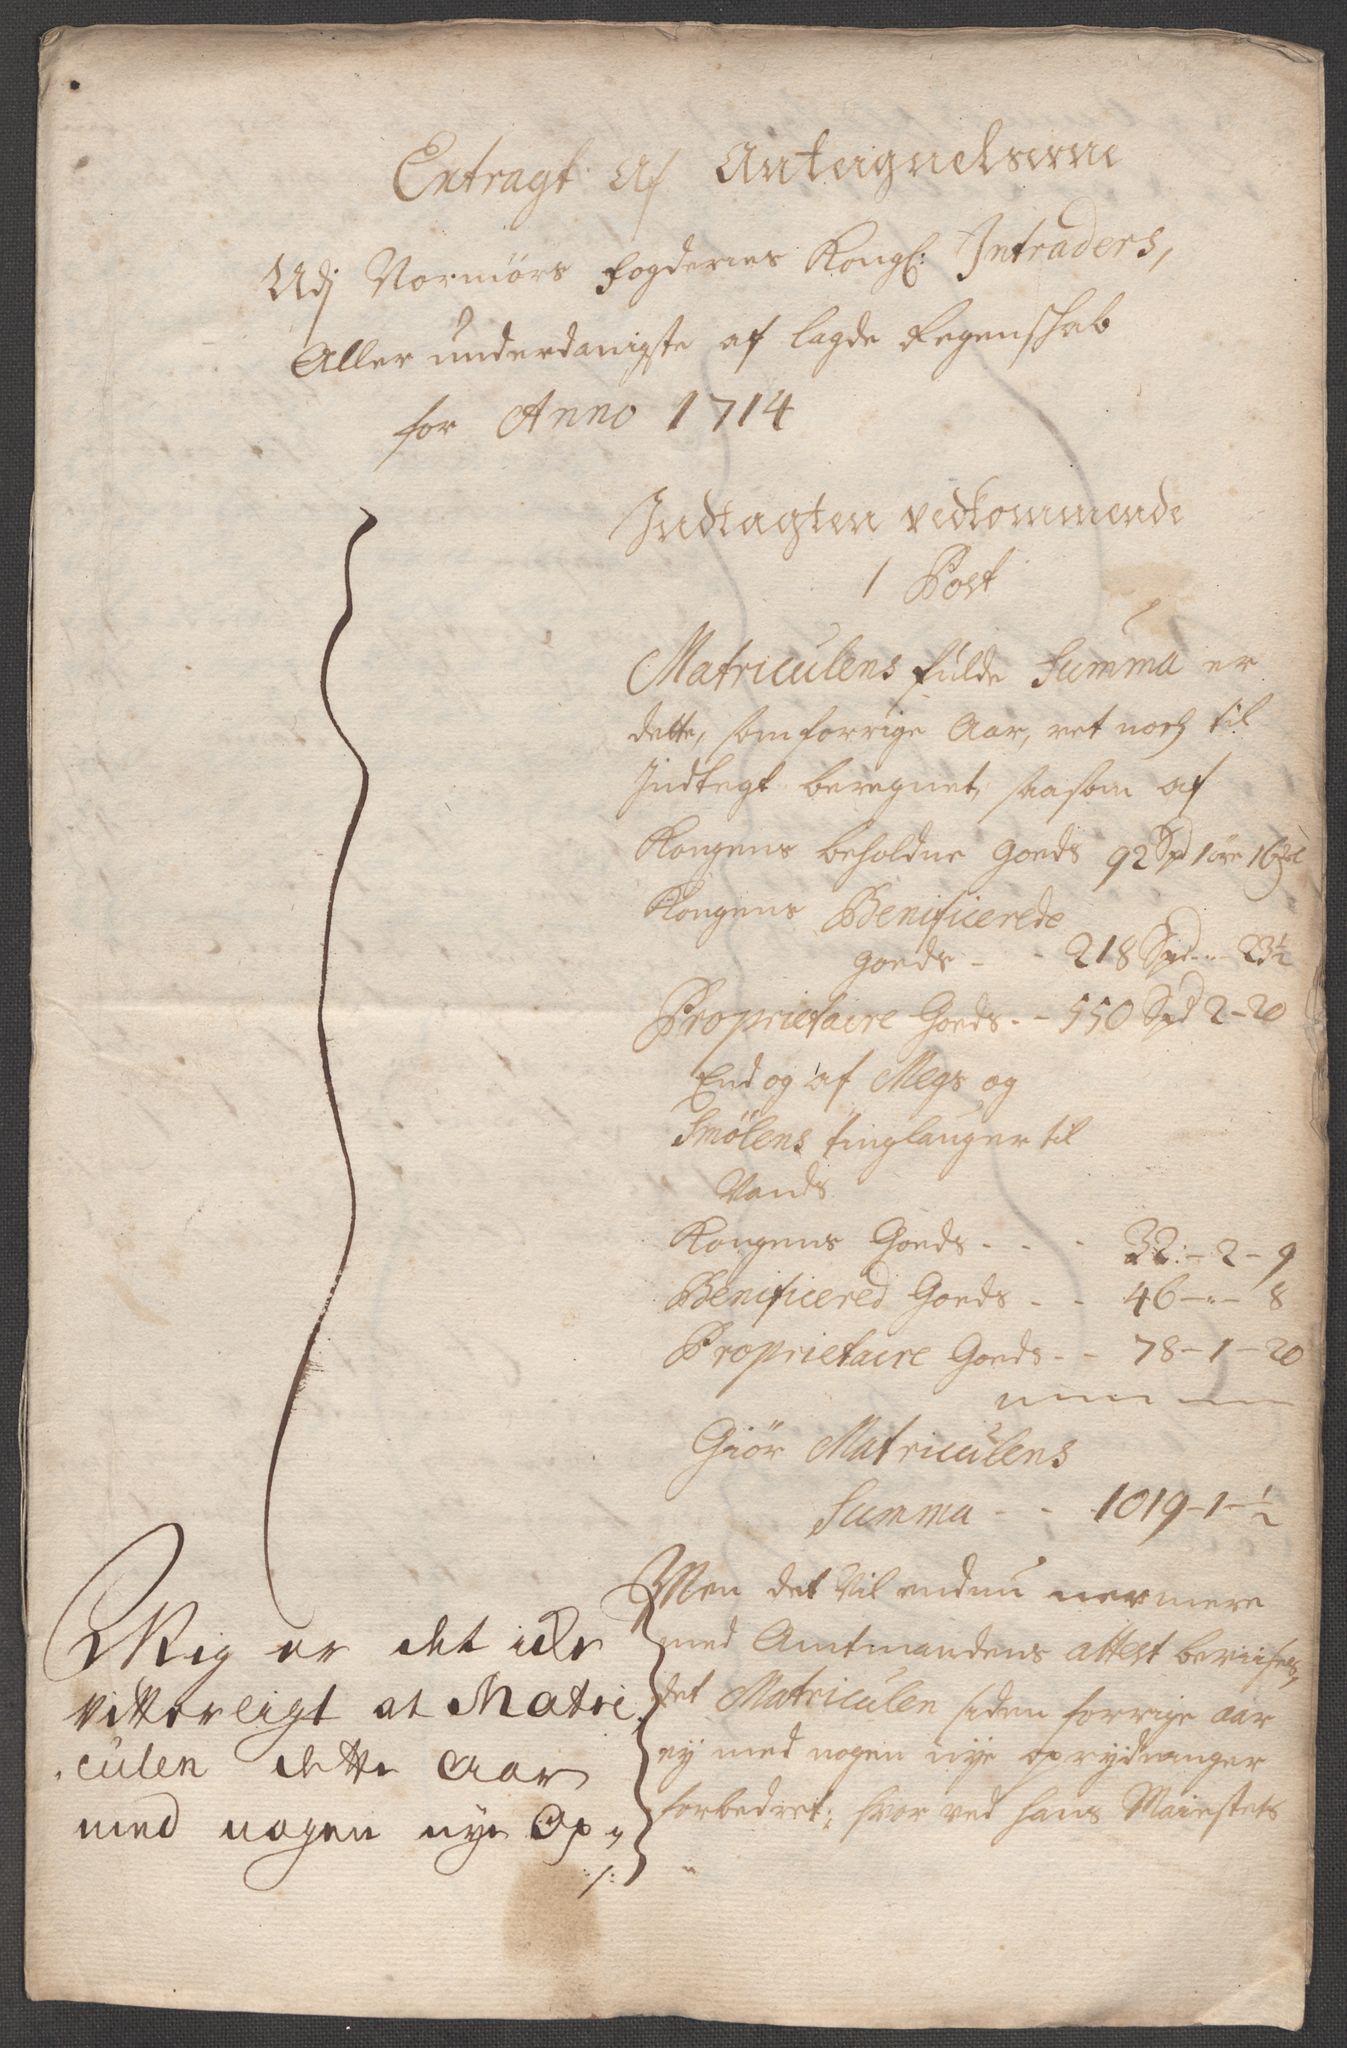 Extragt af Anteignelserne
Udj Normørs fogderies Kongl: Intraders,
Aller underdanigste af lagde Regenschab
for Anno 1714
Indtagten vedkommende
1 Post
Matriculens fulde Summa er
dette, som forrige Aar, ret noch til
Indtegt beregnet, saasom af
Kongens beholdne Goeds 92 Spd 1 öre 16
Kongens Benificerede
goeds - - 218 Spd -"- 23½
Proprietaire Goeds - - 550 Spd 2 - 20
End og af Megs og
Smølens tinglauger til
Vands
Kongens Goeds - - - 32: - 2 - 9
Benificered Goeds - - 46 -"- 8
Proprietaire Goeds - - 78 - 1 - 20
Giör Matriculens
Summa - - 1019 - 1 - ½
Men det vil endnu nermere
med Amtmandens attest beviises,
det Matriculen siden forrige aar
ej med nogen nye oprydninger
forbedret; hvor ved hans Maiestets
Mig er det icke
vitterligt at Matri
culen dette Aar
med nogen nye Op„
:/: